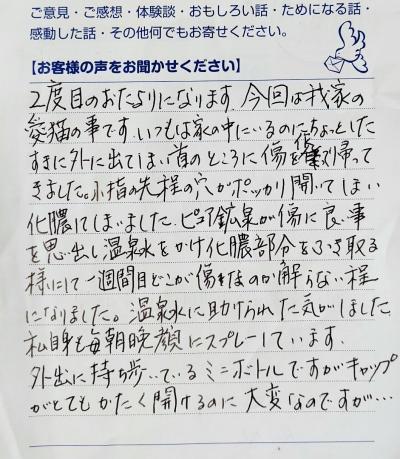 ご意見・ご感想・体験談・おもしろい話・ためになる話・
感動した話・その他何でもお寄せください。
【お客様の声をお聞かせください】
2度目のおたよりになります。今回は我家の
愛猫の事です。いつもは家の中にいるのにちょっとした
すきに外に出てしまい首のところに傷を 帰って
きました。小指の先程の穴がポッカリ開いてしまい
化膿してしまいました、ピュア鉱泉が傷に良い事
を思い出し温泉水をかけ化膿部分をふき取る
様にして一週間目どこが傷なのか解らない程
になりました。温泉水に助けられた気がしました
私自身も毎朝晩顔にスプレーしています。
外出に持ち歩いているミニボトルですがキャップ
がとてもかたく開けるのに大変なのですが…